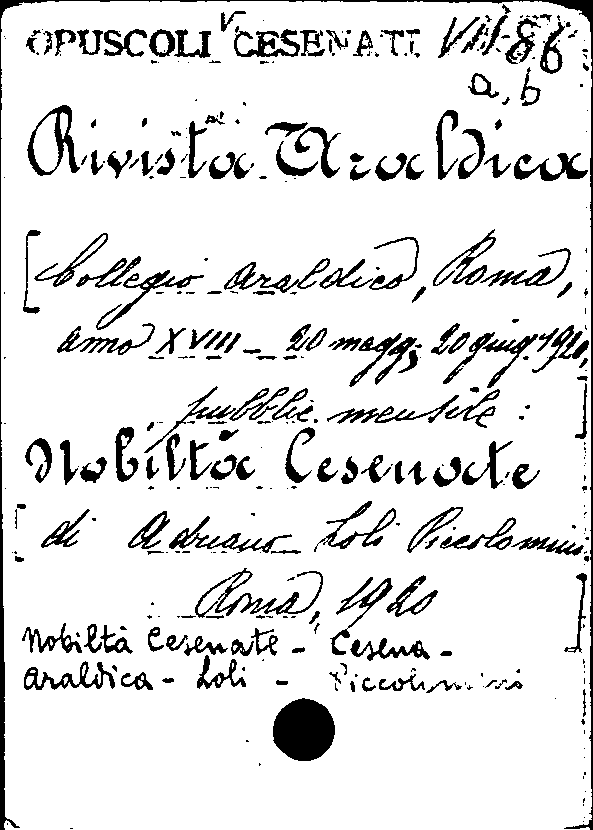 OPUSCOLI CESENATI VII-86
a, b
Rivista Araldica
[Collegio araldico, Roma,
anno XVIII - 20 magg; 20 giug. 1920,
pubblic. mensile : ]
Nobiltà Cesenate
[di Adriano Loli Piccolomini
Roma, 1920 ]
Nobiltà Cesenate - Cesena -
Araldica - Loli - Piccolomini